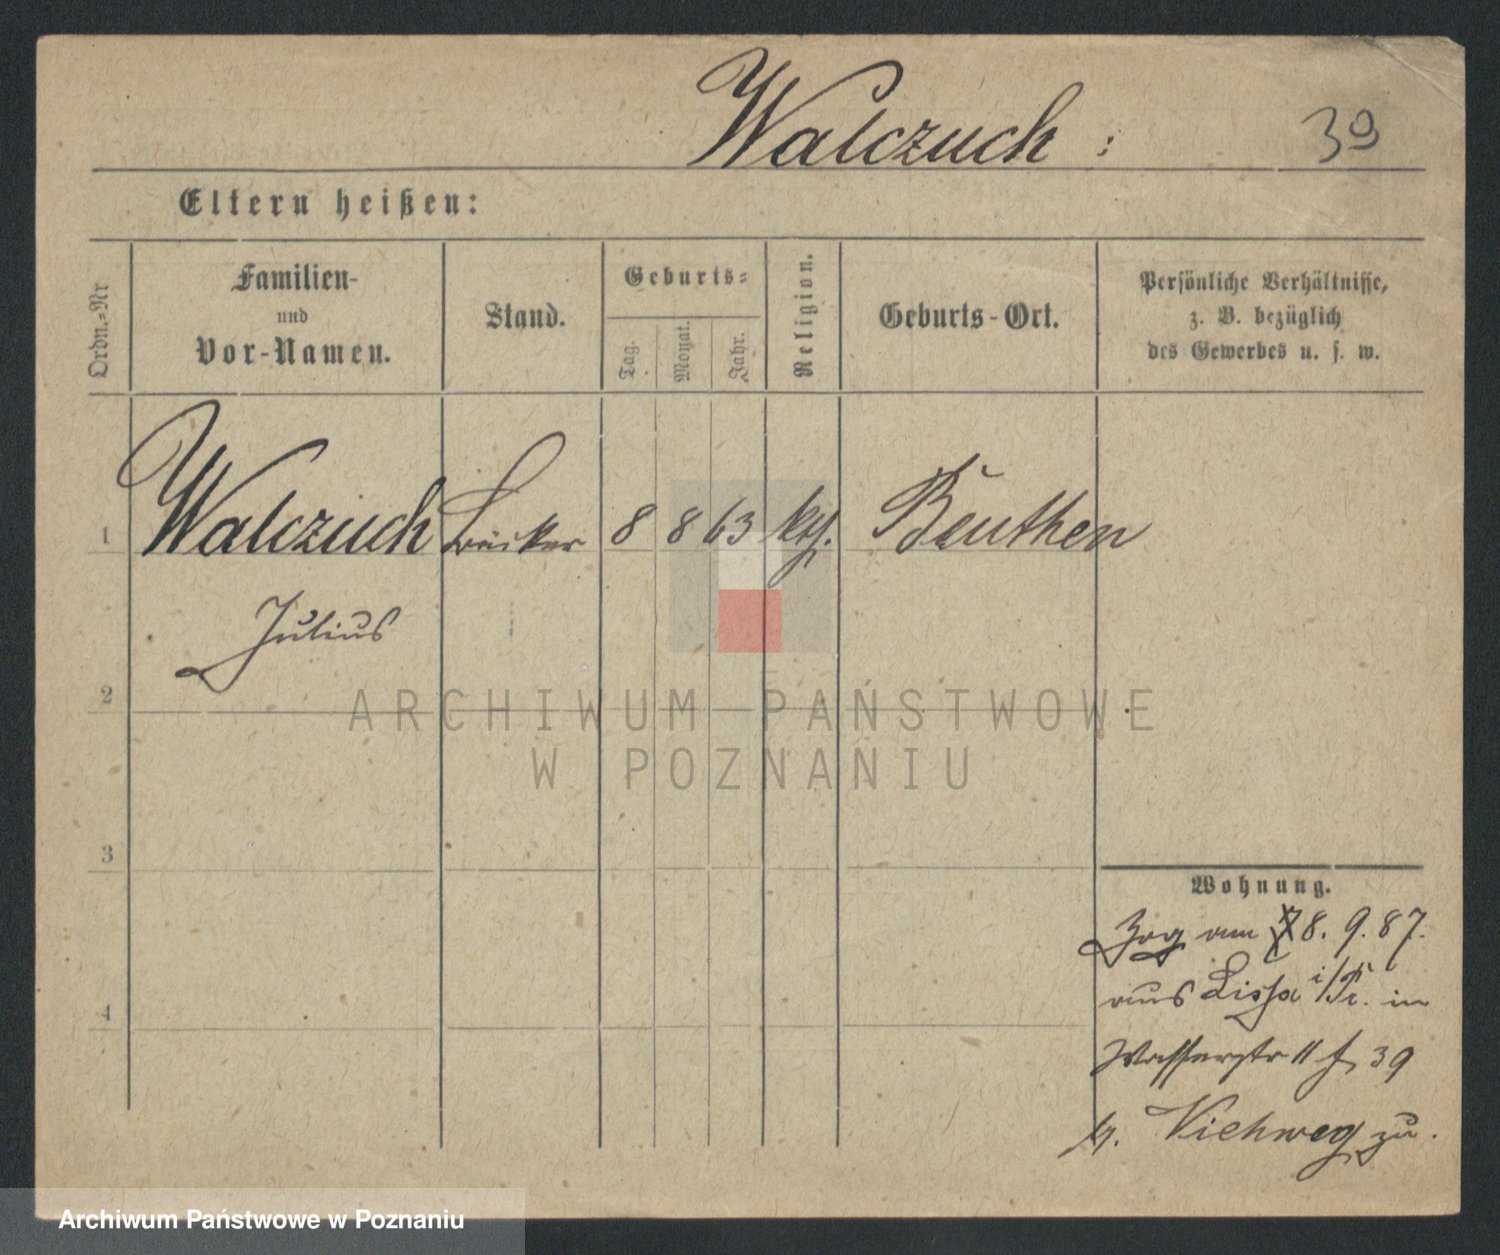 Walczuch :
39
Eltern heißen:
Ordn.=Nr
Familien-
und
Vor-Namen.
Stand.
Geburts=
Tag.
Monat.
Jahr.
Religion.
Geburts-Ort.
Persönliche Verhältnisse,
z. B. bezüglich
des Gewerbes u. s. w.
1
Walczuch Bäcker 8 8 63 kth. Beuthen
Julius
2
ARCHIWUM PAŃSTWOWE
W POZNANIU
3
Wohnung.
Zog am 8. 9. 87.
aus Lissa i/Pr. in
4
Wasserstr 11 f 39
b. Viehweg zu.
Archiwum Państwowe w Poznaniu